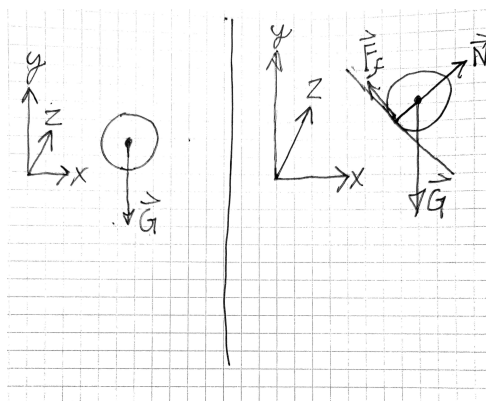 y
z
x
G⃗
y
z
x
F⃗f
N⃗
G⃗